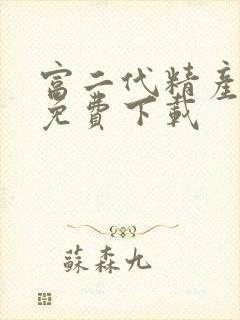 富二代精產
免費下載
蘇森九